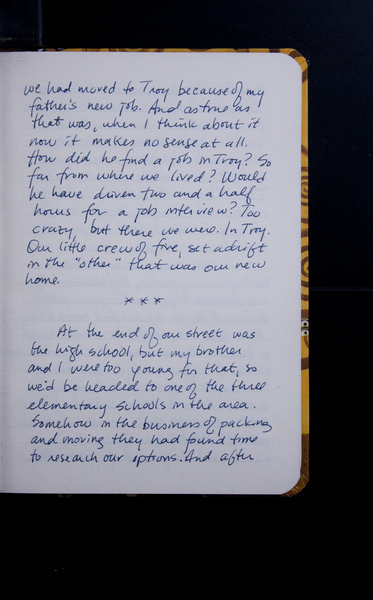 we had moved to Troy because of my
father's new job. And as true as
that was, when I think about it
now it makes no sense at all.
How did he find a job in Troy? So
far from where we lived? Would
he have driven two and a half
hours for a job interview? Too
crazy, but there we were. In Troy.
Our little crew of five, set adrift
in the "other" that was our new
home.
***
At the end of our street was
the high school, but my brother
and I were too young for that, so
we'd be headed to one of the three
elementary schools in the area.
Somehow in the business of packing
and moving they had found time
to research our options. And after